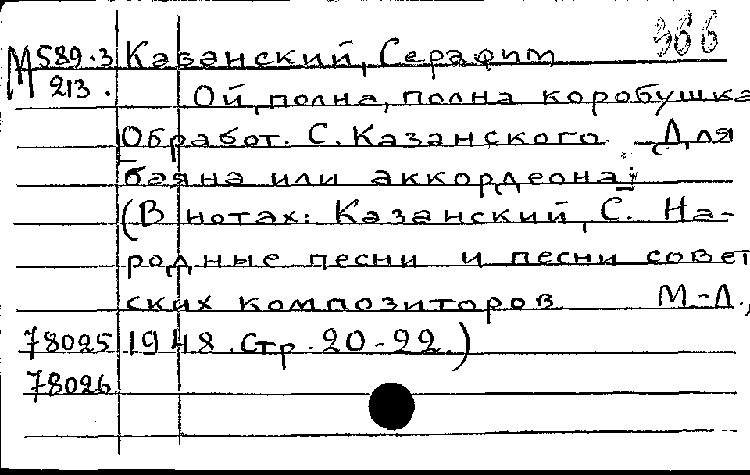 366
М 589.3 Казанский, Серафим
213. Ой, полна, полна коробушка
Обработ. С. Казанского Для
баяна или аккордеона;
(В нотах: Казанский, С. На-
родные песни и песни совет
ских композиторов М.-Л.,
78025 1948. Стр. 20-22.)
78026